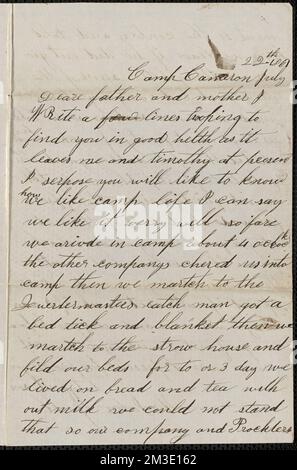 Camp Cameron July 22th 1861
Deare father and mother I
WRite a few lines hoping to
find you in good hilth as it
leaves me and timothy at preasen
I serpose you will like to know
how we like camp life I can say
we like it verry well so fare
we arivde in camp about 4 occock
the other companys chered us into
camp then we martch to the
Quertermasters eatch man got a
bed tick and blanket then we
martch to the strow house and
fild our beds for to or 3 day we
lived on bread and tea with
out milk we could not stand
that so our company and Procklers
alamy
Image ID: 2M3E162
www.alamy.com